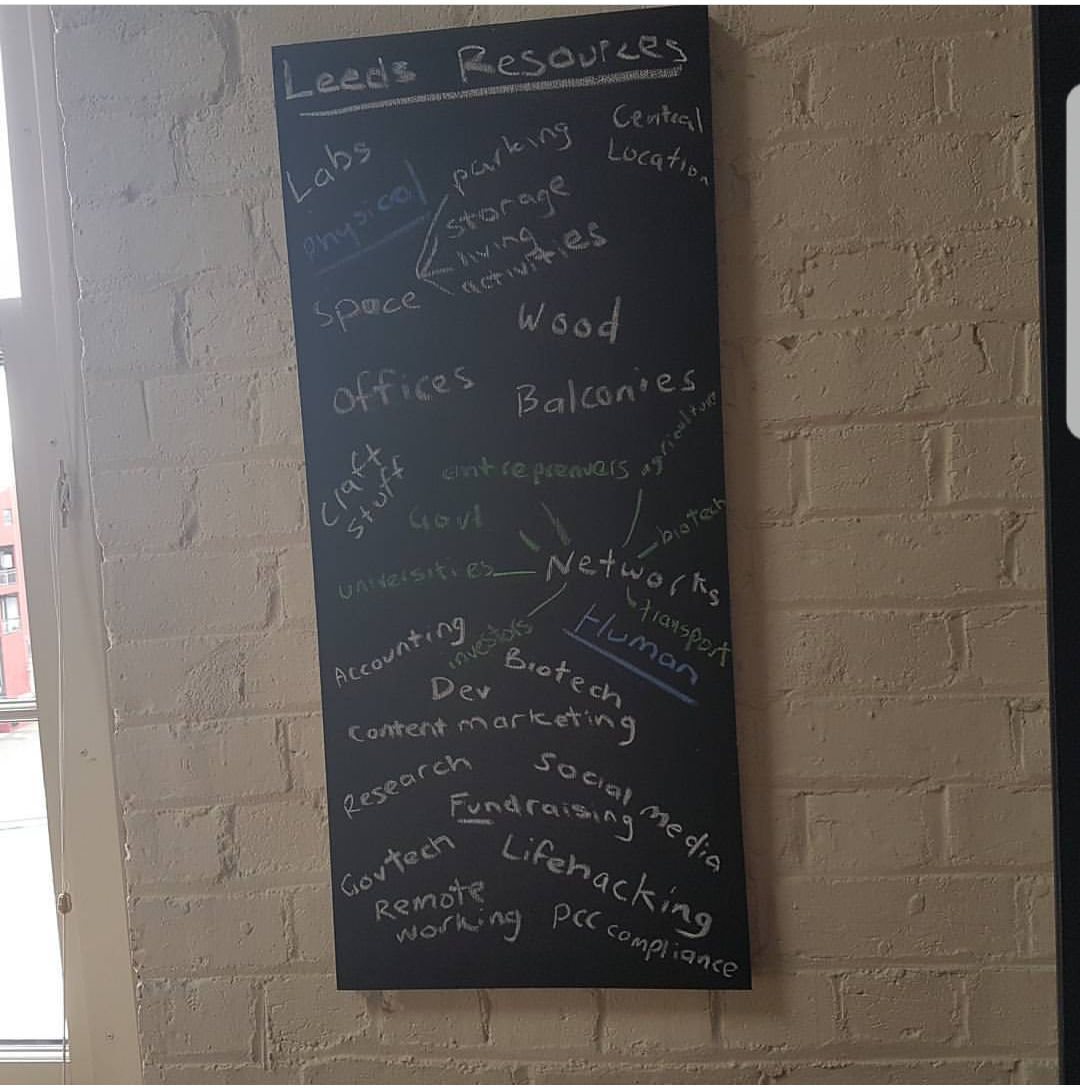 Leeds Resources
Central
Location
Labs
physical
parking
storage
living
activities
Space
Wood
Offices
Balconies
Craft
Stuff
entreprenuers
agriculture
Govt
biotech
universities
Networks
transport
investors
Human
Accounting
Biotech
Dev
Content marketing
Research
Social media
Fundraising
Govtech
Lifehacking
Remote
working
PCC compliance